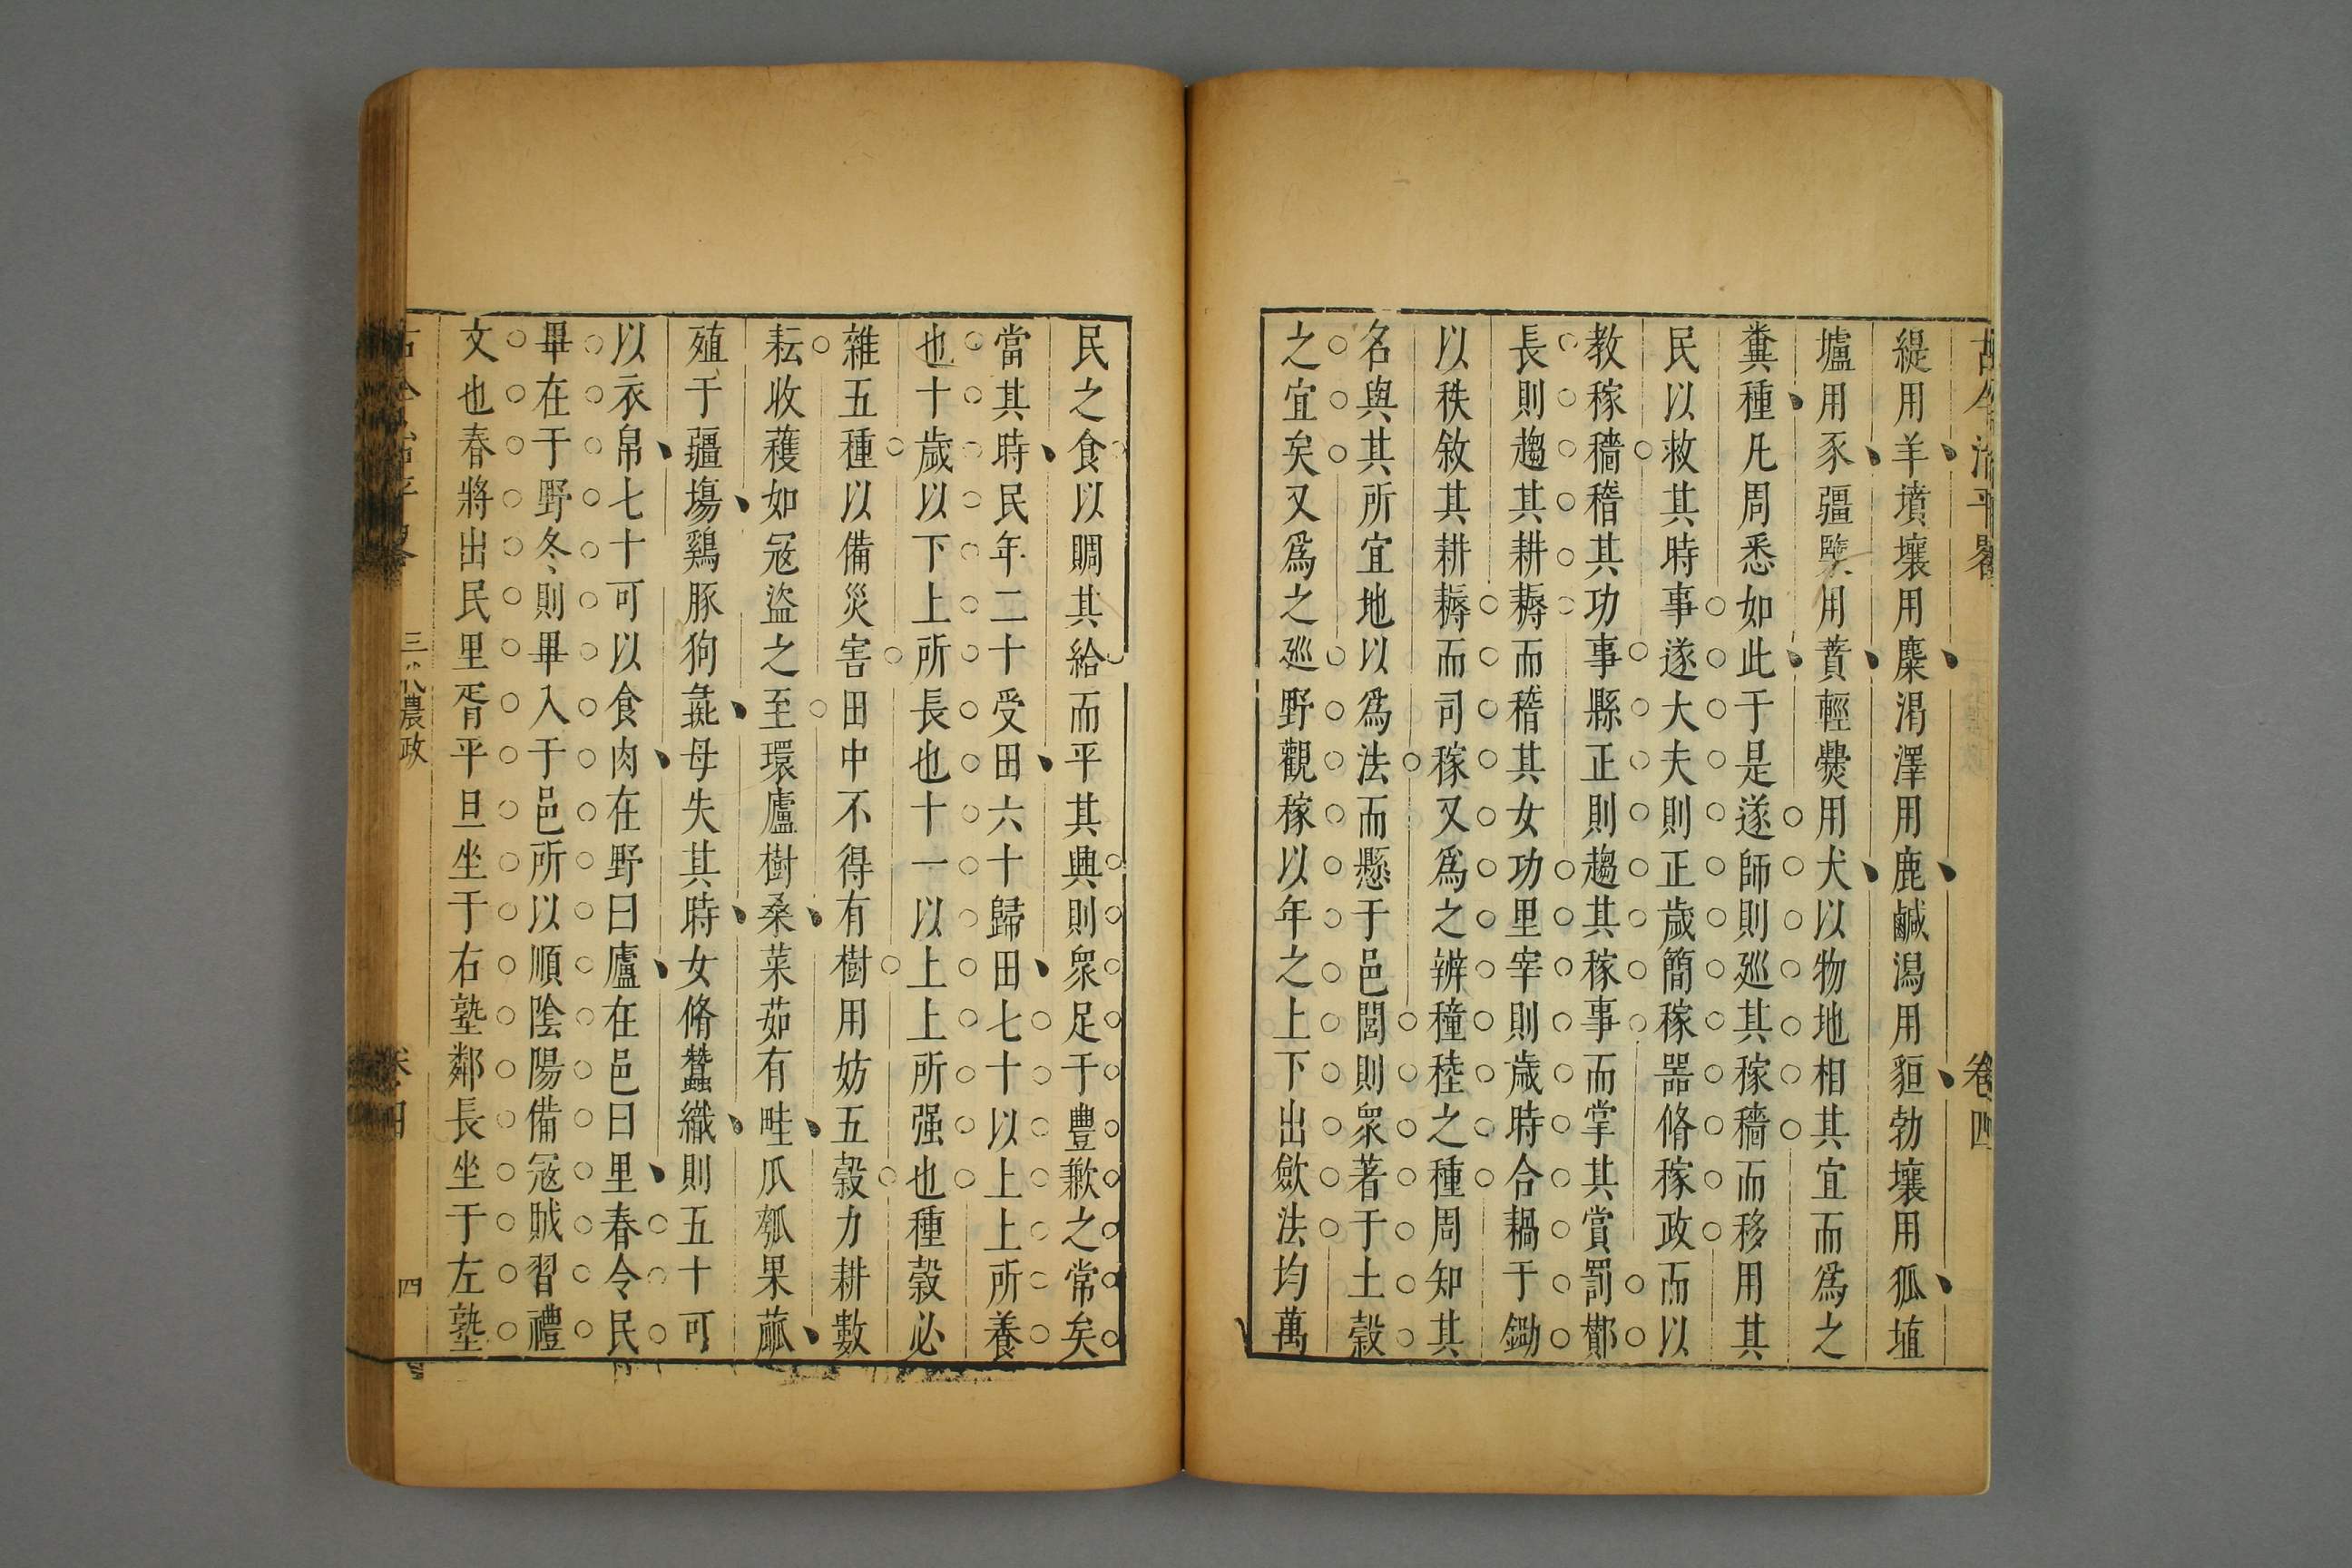 古今治平畧 卷四
緹用羊墳壤用麋渴澤用鹿鹹潟用貆勃壤用狐埴
壚用豕疆㯺用蕡輕㸑用犬以物地相其宜而爲之
糞種凡周悉如此于是遂師則廵其稼穡而移用其
民以救其時事遂大夫則正歲簡稼器脩稼政而以
教稼穡稽其功事縣正則趨其稼事而掌其賞罰酇
長則趨其耕耨而稽其女功里宰則歲時合耦于鋤
以秩敘其耕耨而司稼又爲之辨穜稑之種周知其
名與其所宜地以爲法而懸于邑閭則衆著于土穀
之宜矣又爲之廵野觀稼以年之上下出歛法均萬
民之食以賙其給而平其興則衆足于豊歉之常矣
當其時民年二十受田六十歸田七十以上上所養
也十歲以下上所長也十一以上上所强也種穀必
雜五種以備災害田中不得有樹用妨五穀力耕數
耘收穫如冦盜之至環廬樹桑菜茹有畦瓜瓠果蓏
殖于疆塲鷄豚狗彘毋失其時女脩蠶織則五十可
以衣帛七十可以食肉在野曰廬在邑曰里春令民
畢在于野冬則畢入于邑所以順隂陽備冦賊習禮
文也春將出民里胥平旦坐于右塾鄰長坐于左塾
三代農政 卷四 四